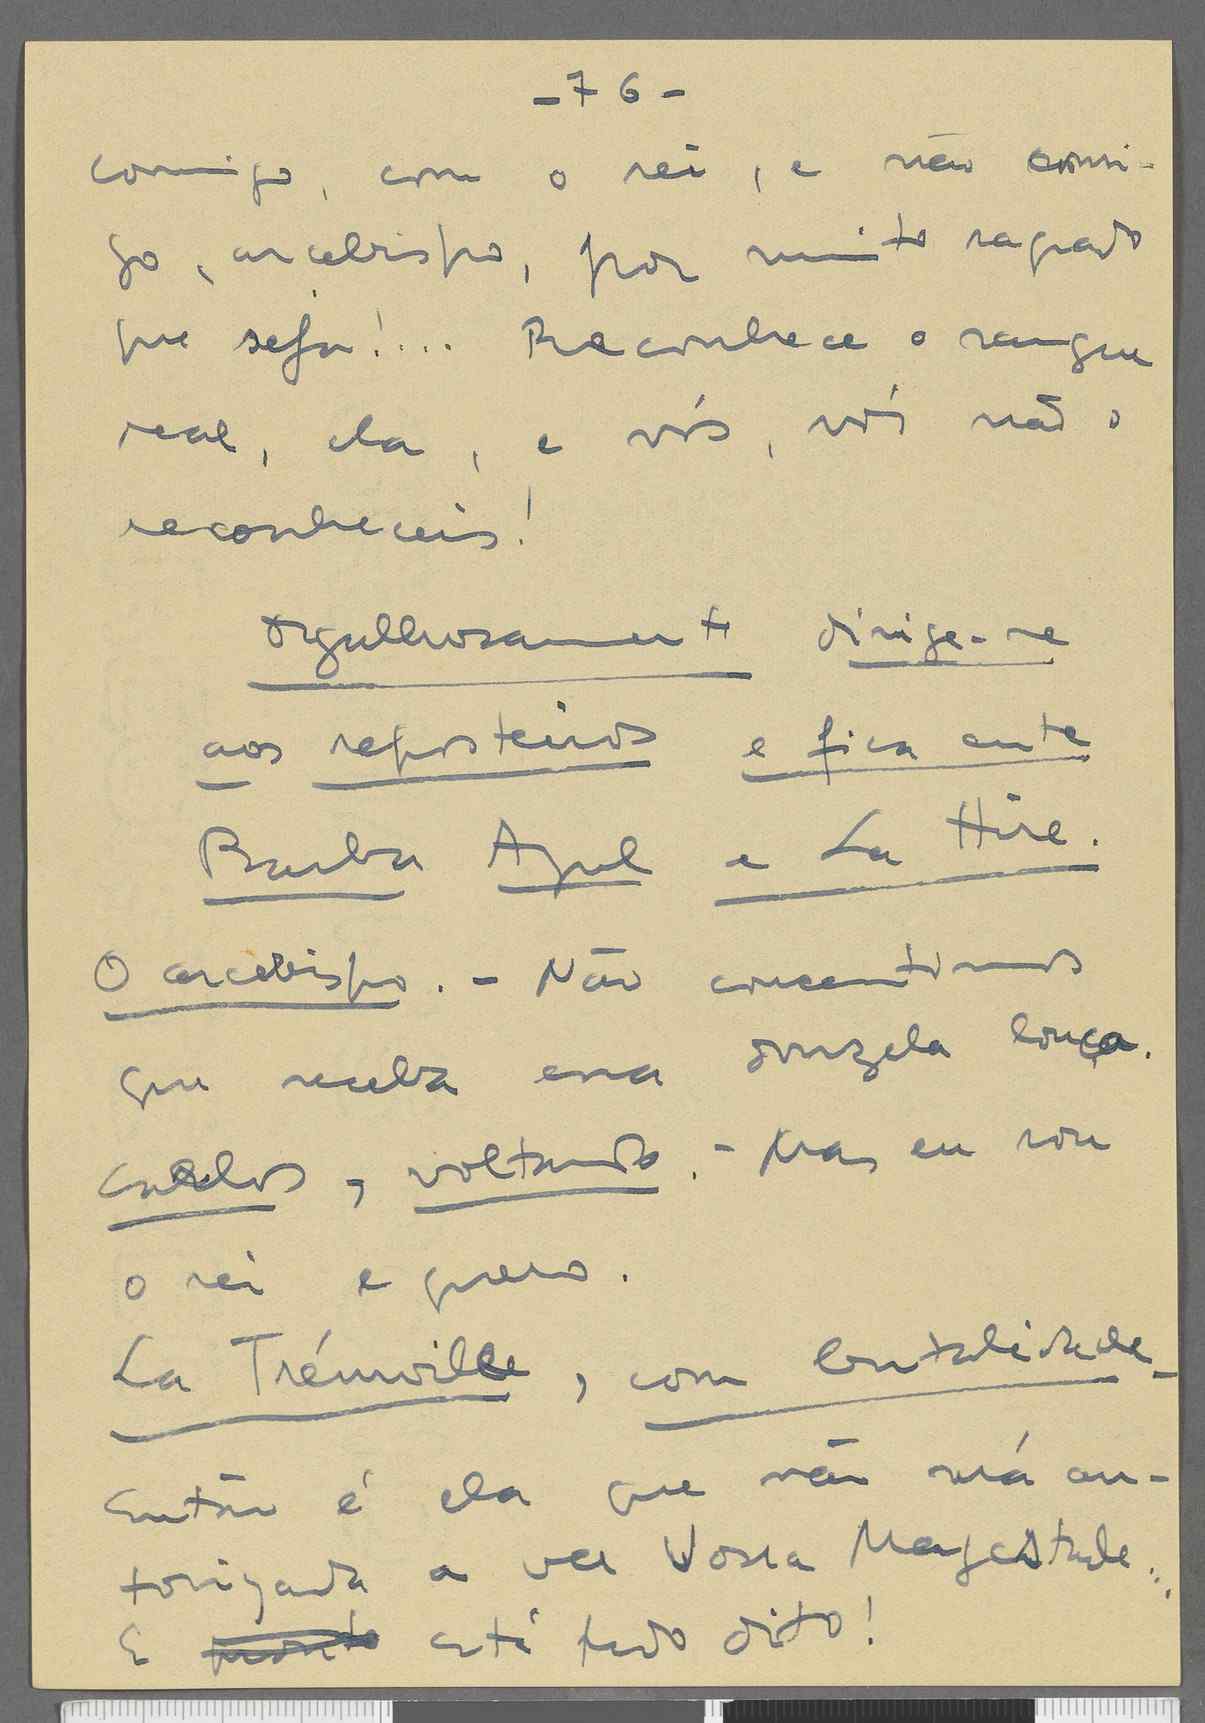 -76-
comigo, com o rei, e não comi-
go, arcebispo, por muito sagrado
que seja!.... Reconhece o sangue
real, ela, e vós, vós não o
reconheceis!
Orgulhosamente dirige-se
aos reposteiros e fica ente
Barba Azul e La Hire.
O arcebispo. - Não consentimos
que receba essa donzela louca.
Carlos, voltando. - Mas eu sou
o rei e quero.
La Trémoille, com brutalidade -
Então é ela que não será au-
torizada a ver Vossa Magestade...
E está tudo dito!